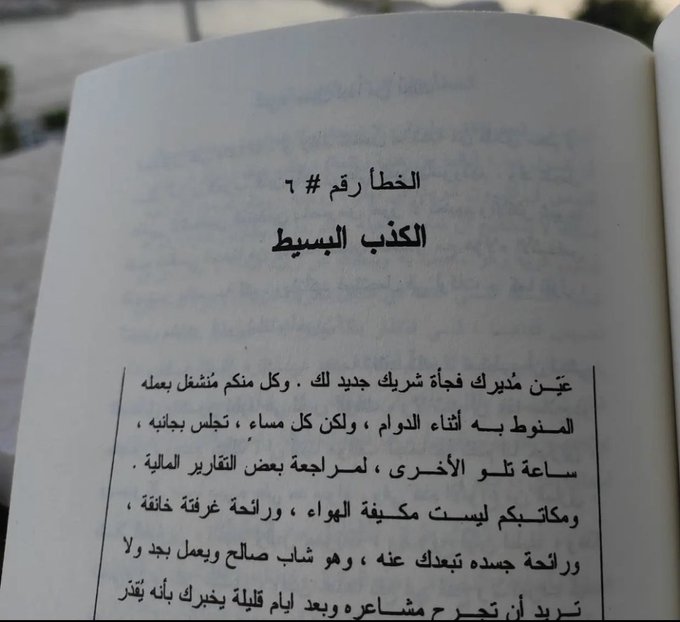 الخطأ رقم # ٦
الكذب البسيط
عيَّن مُديرك فجأة شريك جديد لك . وكل منكم مُنشغل بعمله
المنوط به أثناء الدوام ، ولكن كل مساءٍ ، تجلس بجانبه ،
ساعة تلو الأخرى ، لمراجعة بعض التقارير المالية .
ومكاتبكم ليست مكيفة الهواء ، ورائحة غرفتة خانقة ،
ورائحة جسده تبعدك عنه ، وهو شاب صالح ويعمل بجد ولا
تريد أن تجرح مشاعره وبعد ايام قليلة يخبرك بأنه يُقدّر